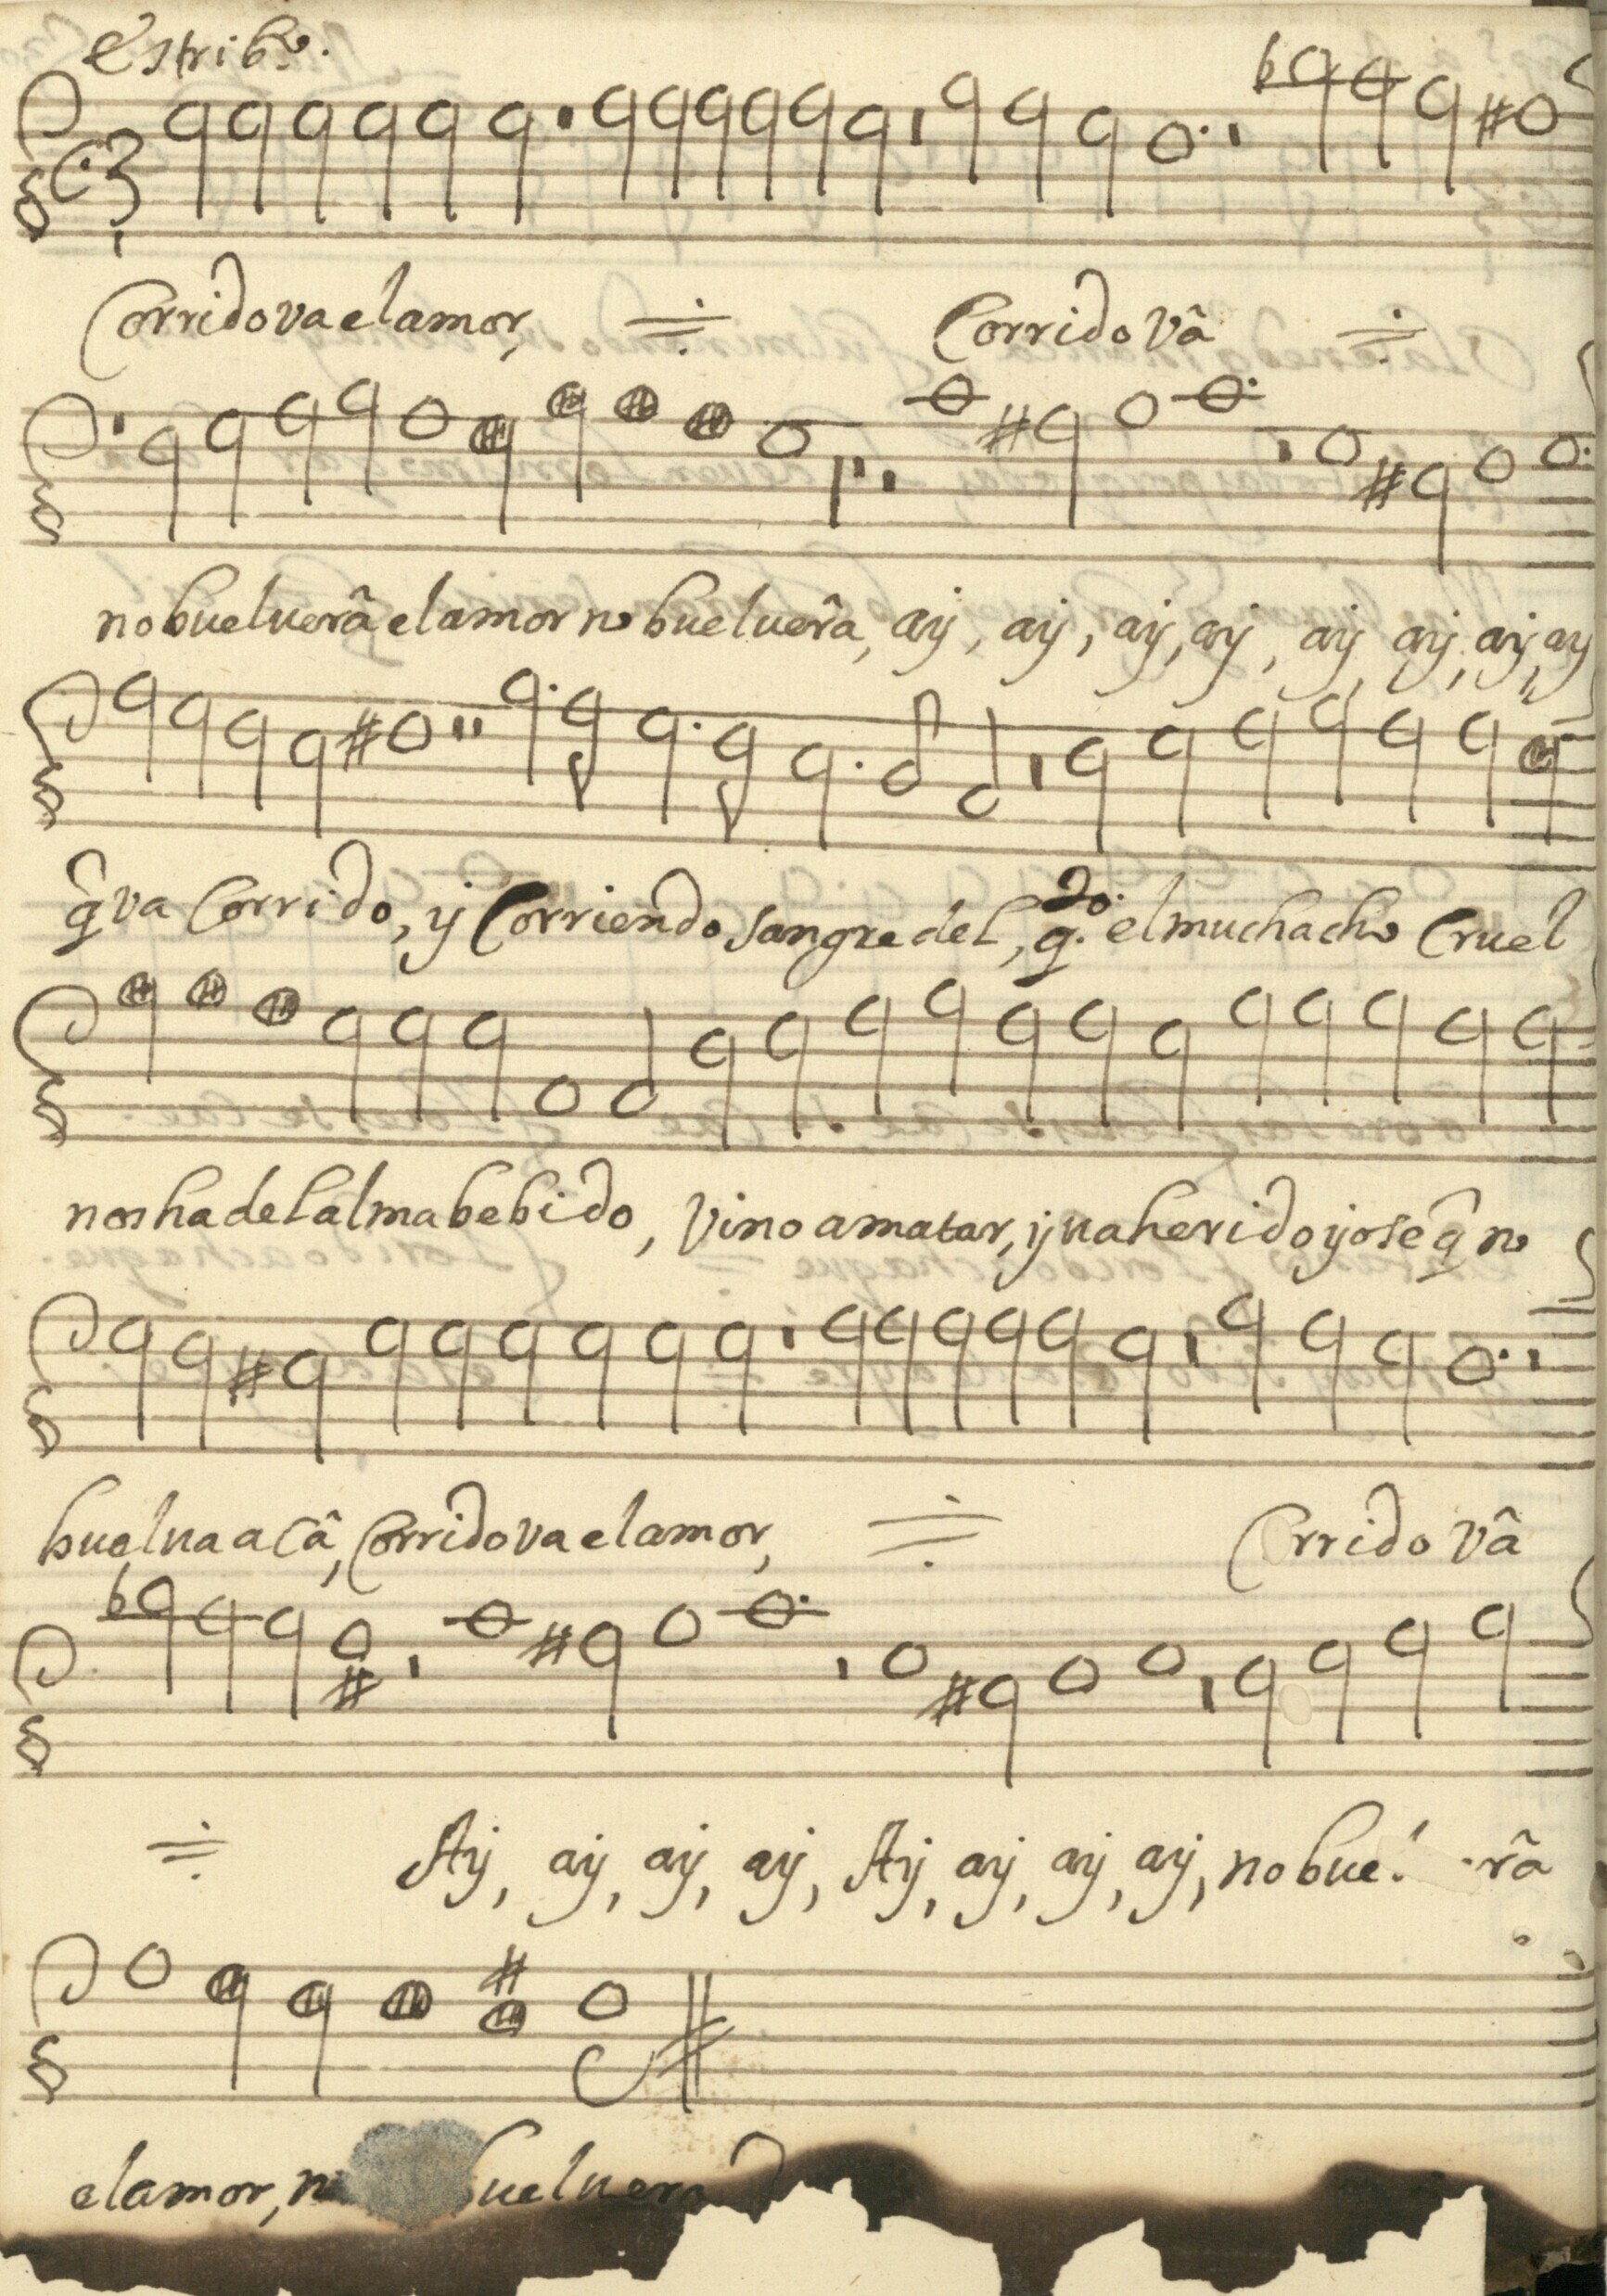 estribo.
Corrido va el amor, Corrido vâ
no buelverâ el amor no buelverâ, ay, ay, ay, ay, ay, ay, ay, ay
q̂ va Corrido, y Corriendo sangre del, q.do el muchacho Cruel
nos ha del alma bebido, Vino a matar, y va herido yo se q̂ no
buelva acâ, Corrido va el amor, Corrido vâ
Ay, ay, ay, ay, Ay, ay, ay, ay, no bue râ
el amor, buelvera